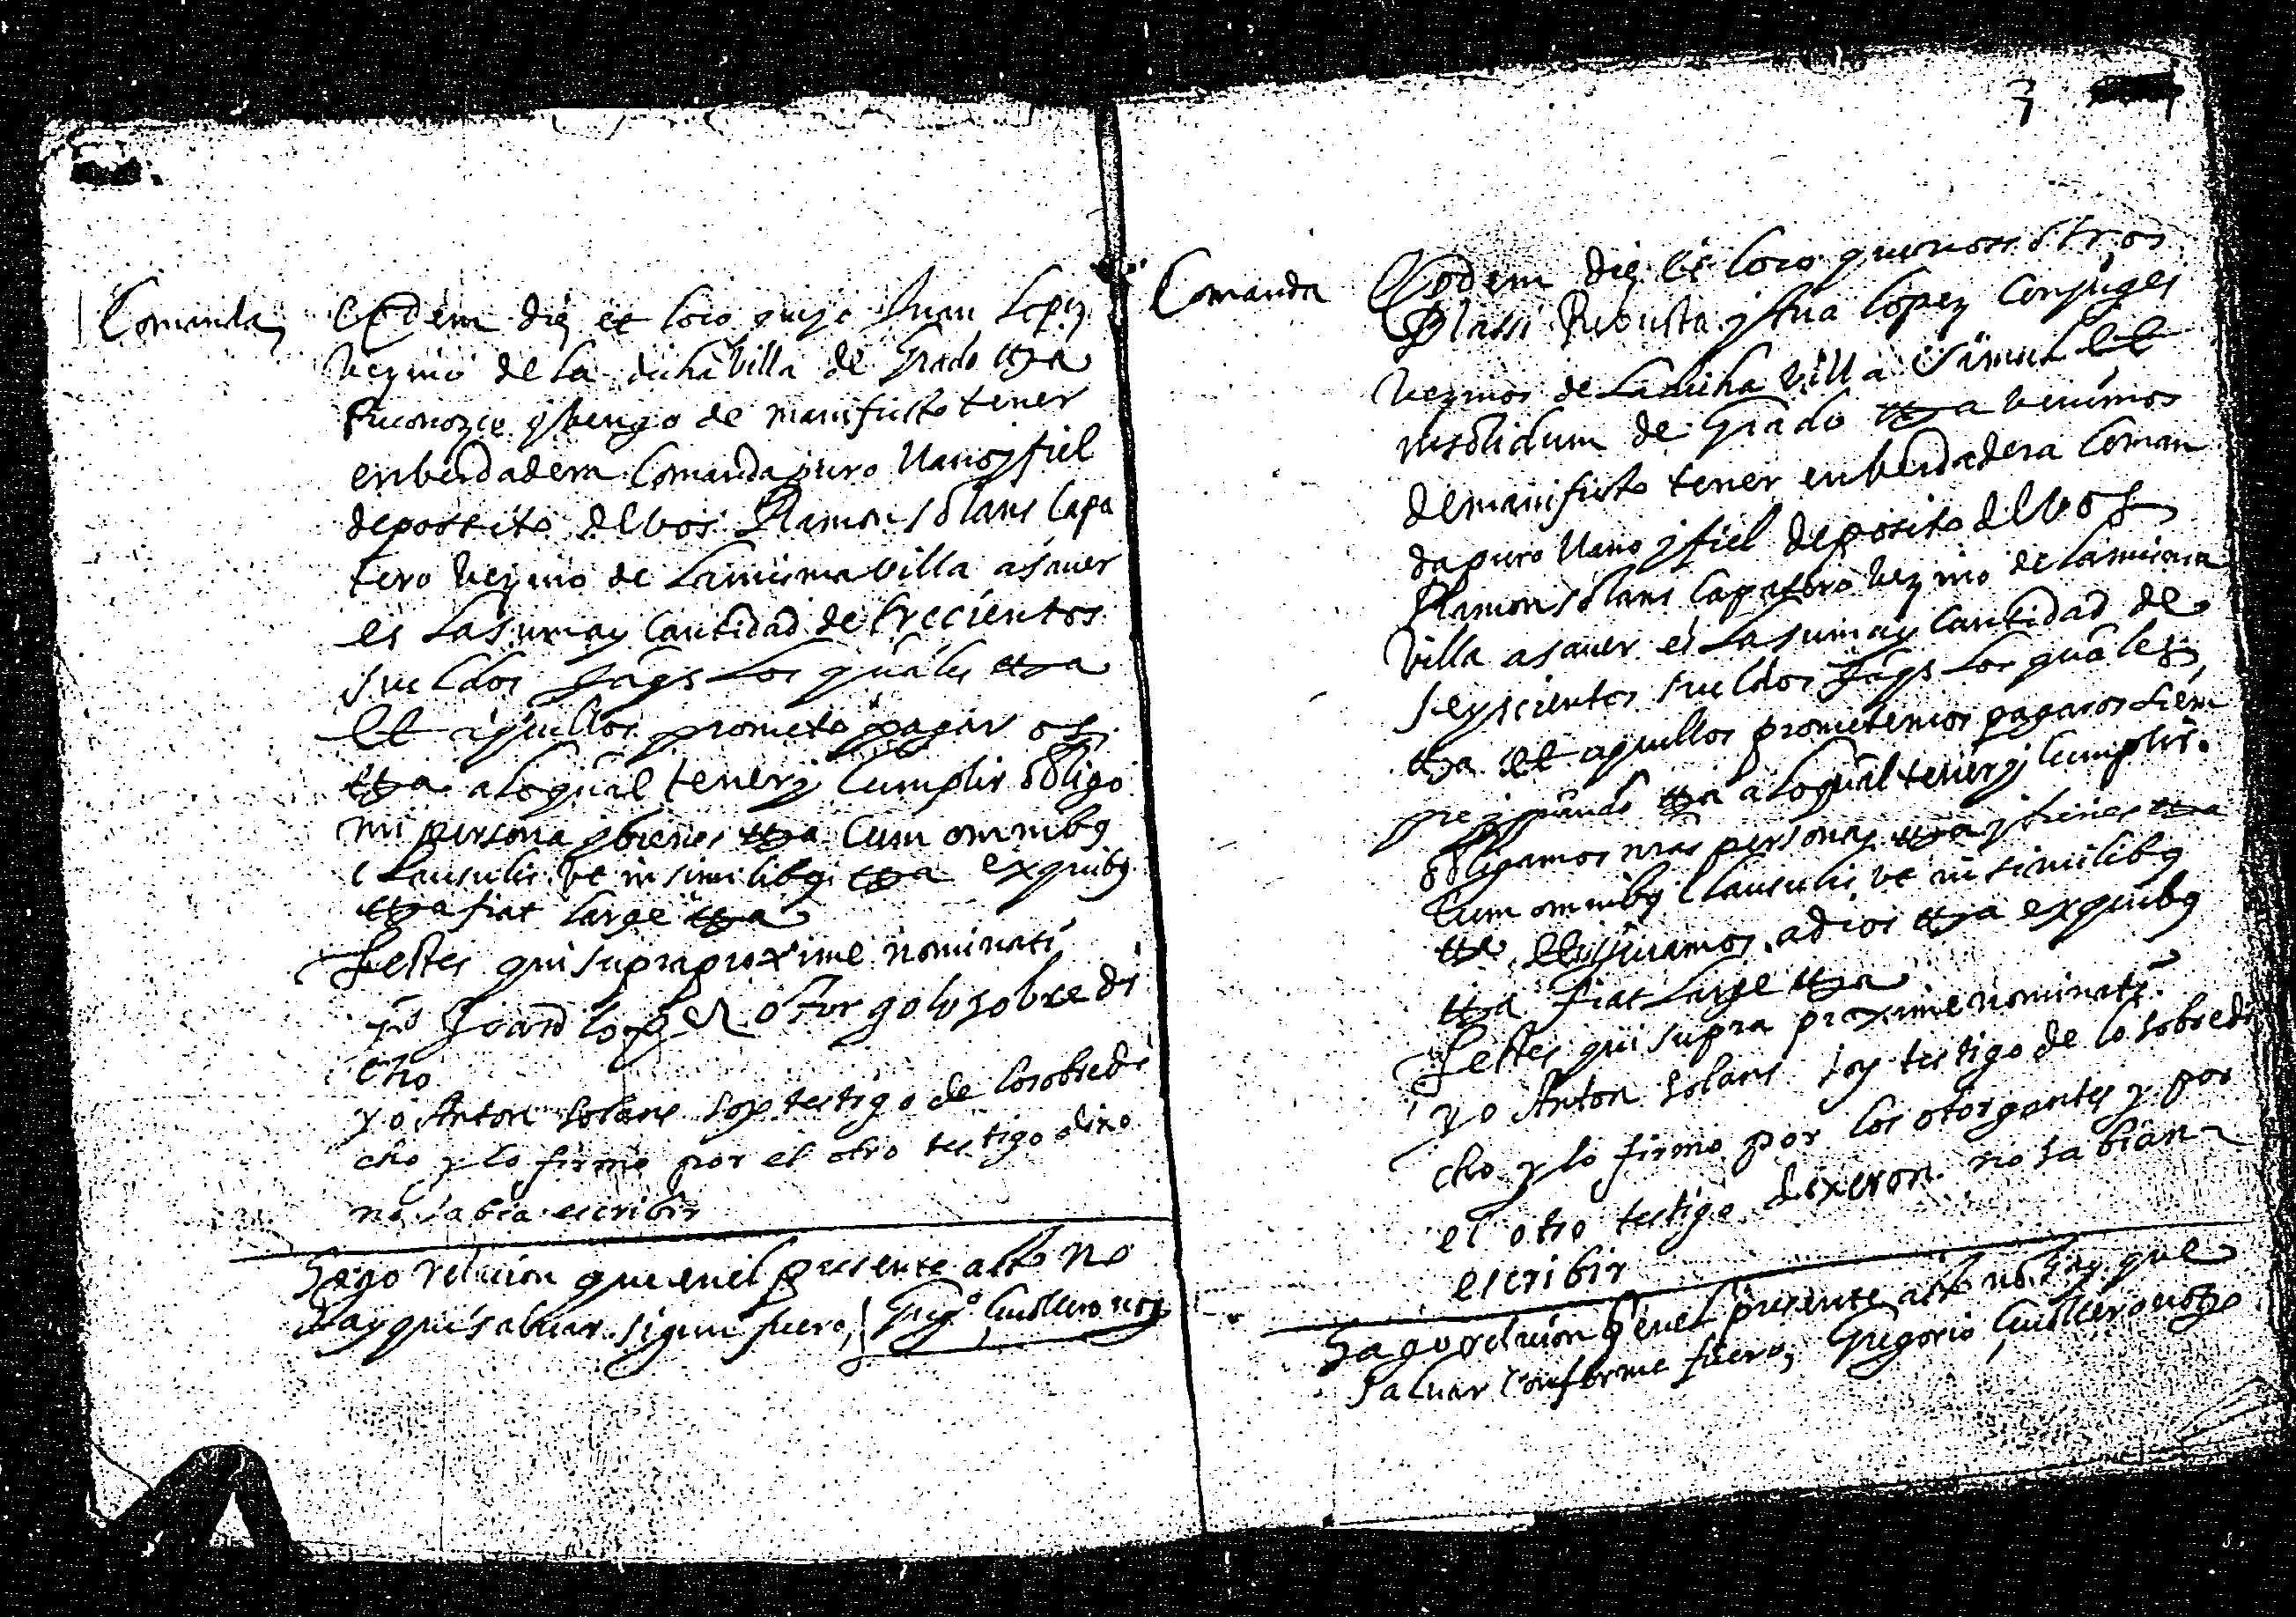 Comanda
Eodem die et loco que yo Juan Lopez
vezino de la dicha villa de Grado etta
Reconozco y bengo de manifiesto tener
en berdadera Comanda puro llano y fiel
depossito de vos Ramon Solans capa
tero vezino de la misma villa a sauer
es la suma y cantidad de trecientos
sueldos Jaqs los quales etta
et aquellos prometo pagar os
etta a lo qual tener y cumplir obligo
mi persona y bienes etta Cum omnibq
clausulis ut in similibq etta ex quibq
etta fiat large etta
Testes qui supra proxime nominati
yo Juan lopez otorgo lo sobre di
cho
yo Anton solans soy testigo de lo sobre di
cho y lo firmo por el otro testigo dixo
no sabia escribir
Hago relacion que en el presente acto no
ay que saluar sigun fuero, Grego Guillero noto
7
Comanda
Eodem die et loco que nosostros
Blassi Rubiista y Ana Lopez Conjuges
vezinos de la dicha villa simul et
insolidum de Grado etta venimos
de manifiesto tener en berdadera Coman
da puro llano y fiel deposito de vos
Ramon Solans capatero vezino de la misma
villa a sauer es la suma y cantidad de
seyscientos sueldos Jaqs los quales
etta et aquellos prometemos pagaros siem
pre y quando etta a lo qual tener y cumplir
obligamos nras personas etta y bienes etta
Cum omnibq clausulis ut in similibq
etta et juramos a dios etta ex quibq
etta fiat large etta
Testes qui supra proxime nominati
yo Anton solans soy testigo de lo sobre di
cho y lo firmo por los otorgantes y por
el otro testigo dixeron no sabian
escribir
Hago relacion q en el presente acto no hay que
saluar conforme fuero, Gregorio Guillero noto